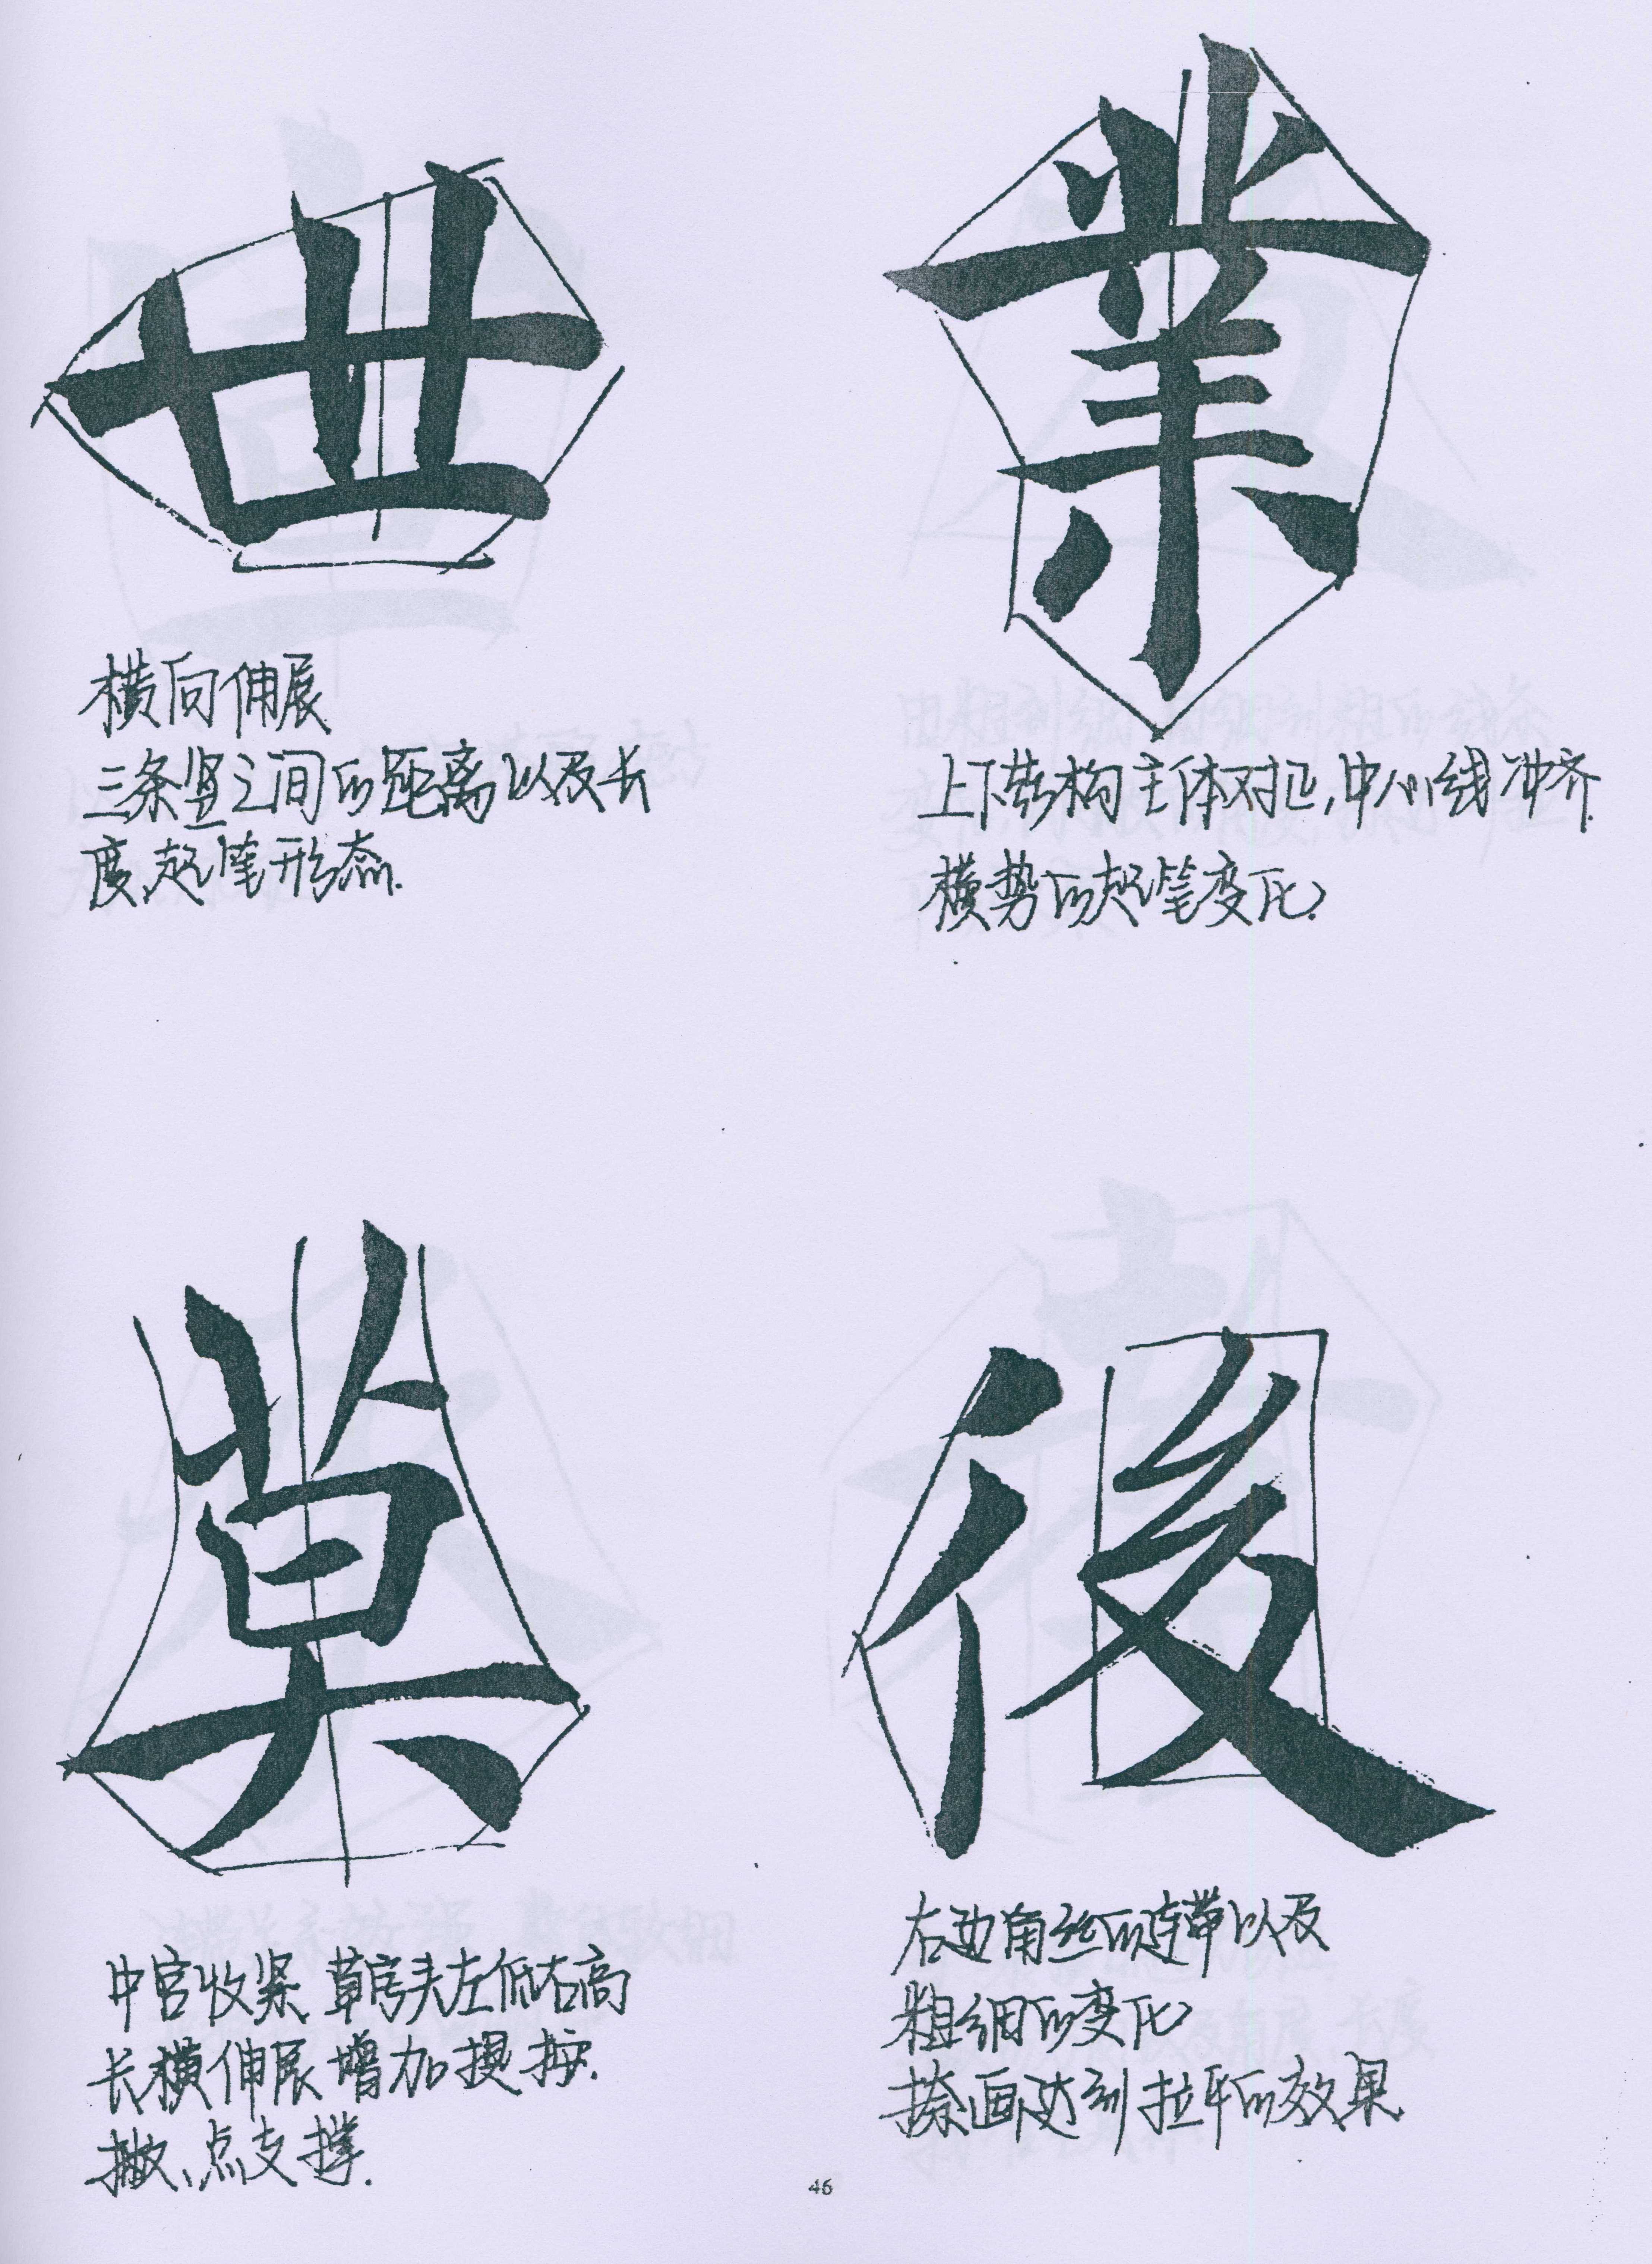 世
横向伸展
三条竖之间的距离以及长
度、起笔形态.
業
上下结构主体对正,中心线冲齐.
横势的起笔变化.
莫
中宫收紧 草字头左低右高
长横伸展增加提按.
撇、点支撑.
後
右边角丝的连带以及
粗细的变化
捺画达到拉平的效果
46